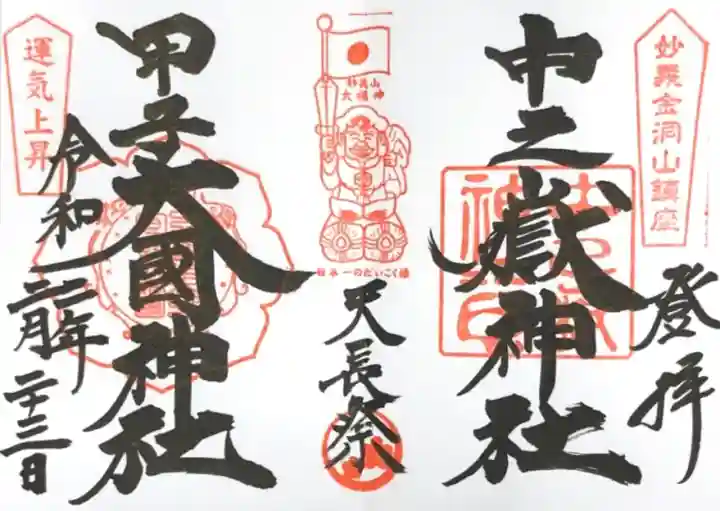 妙義金洞山鎮座
登拝
中之嶽神社
妙義山
大福神
日本一のだいこく様
天長祭
甲子大國神社
運気上昇
令和二年
二月二十三日